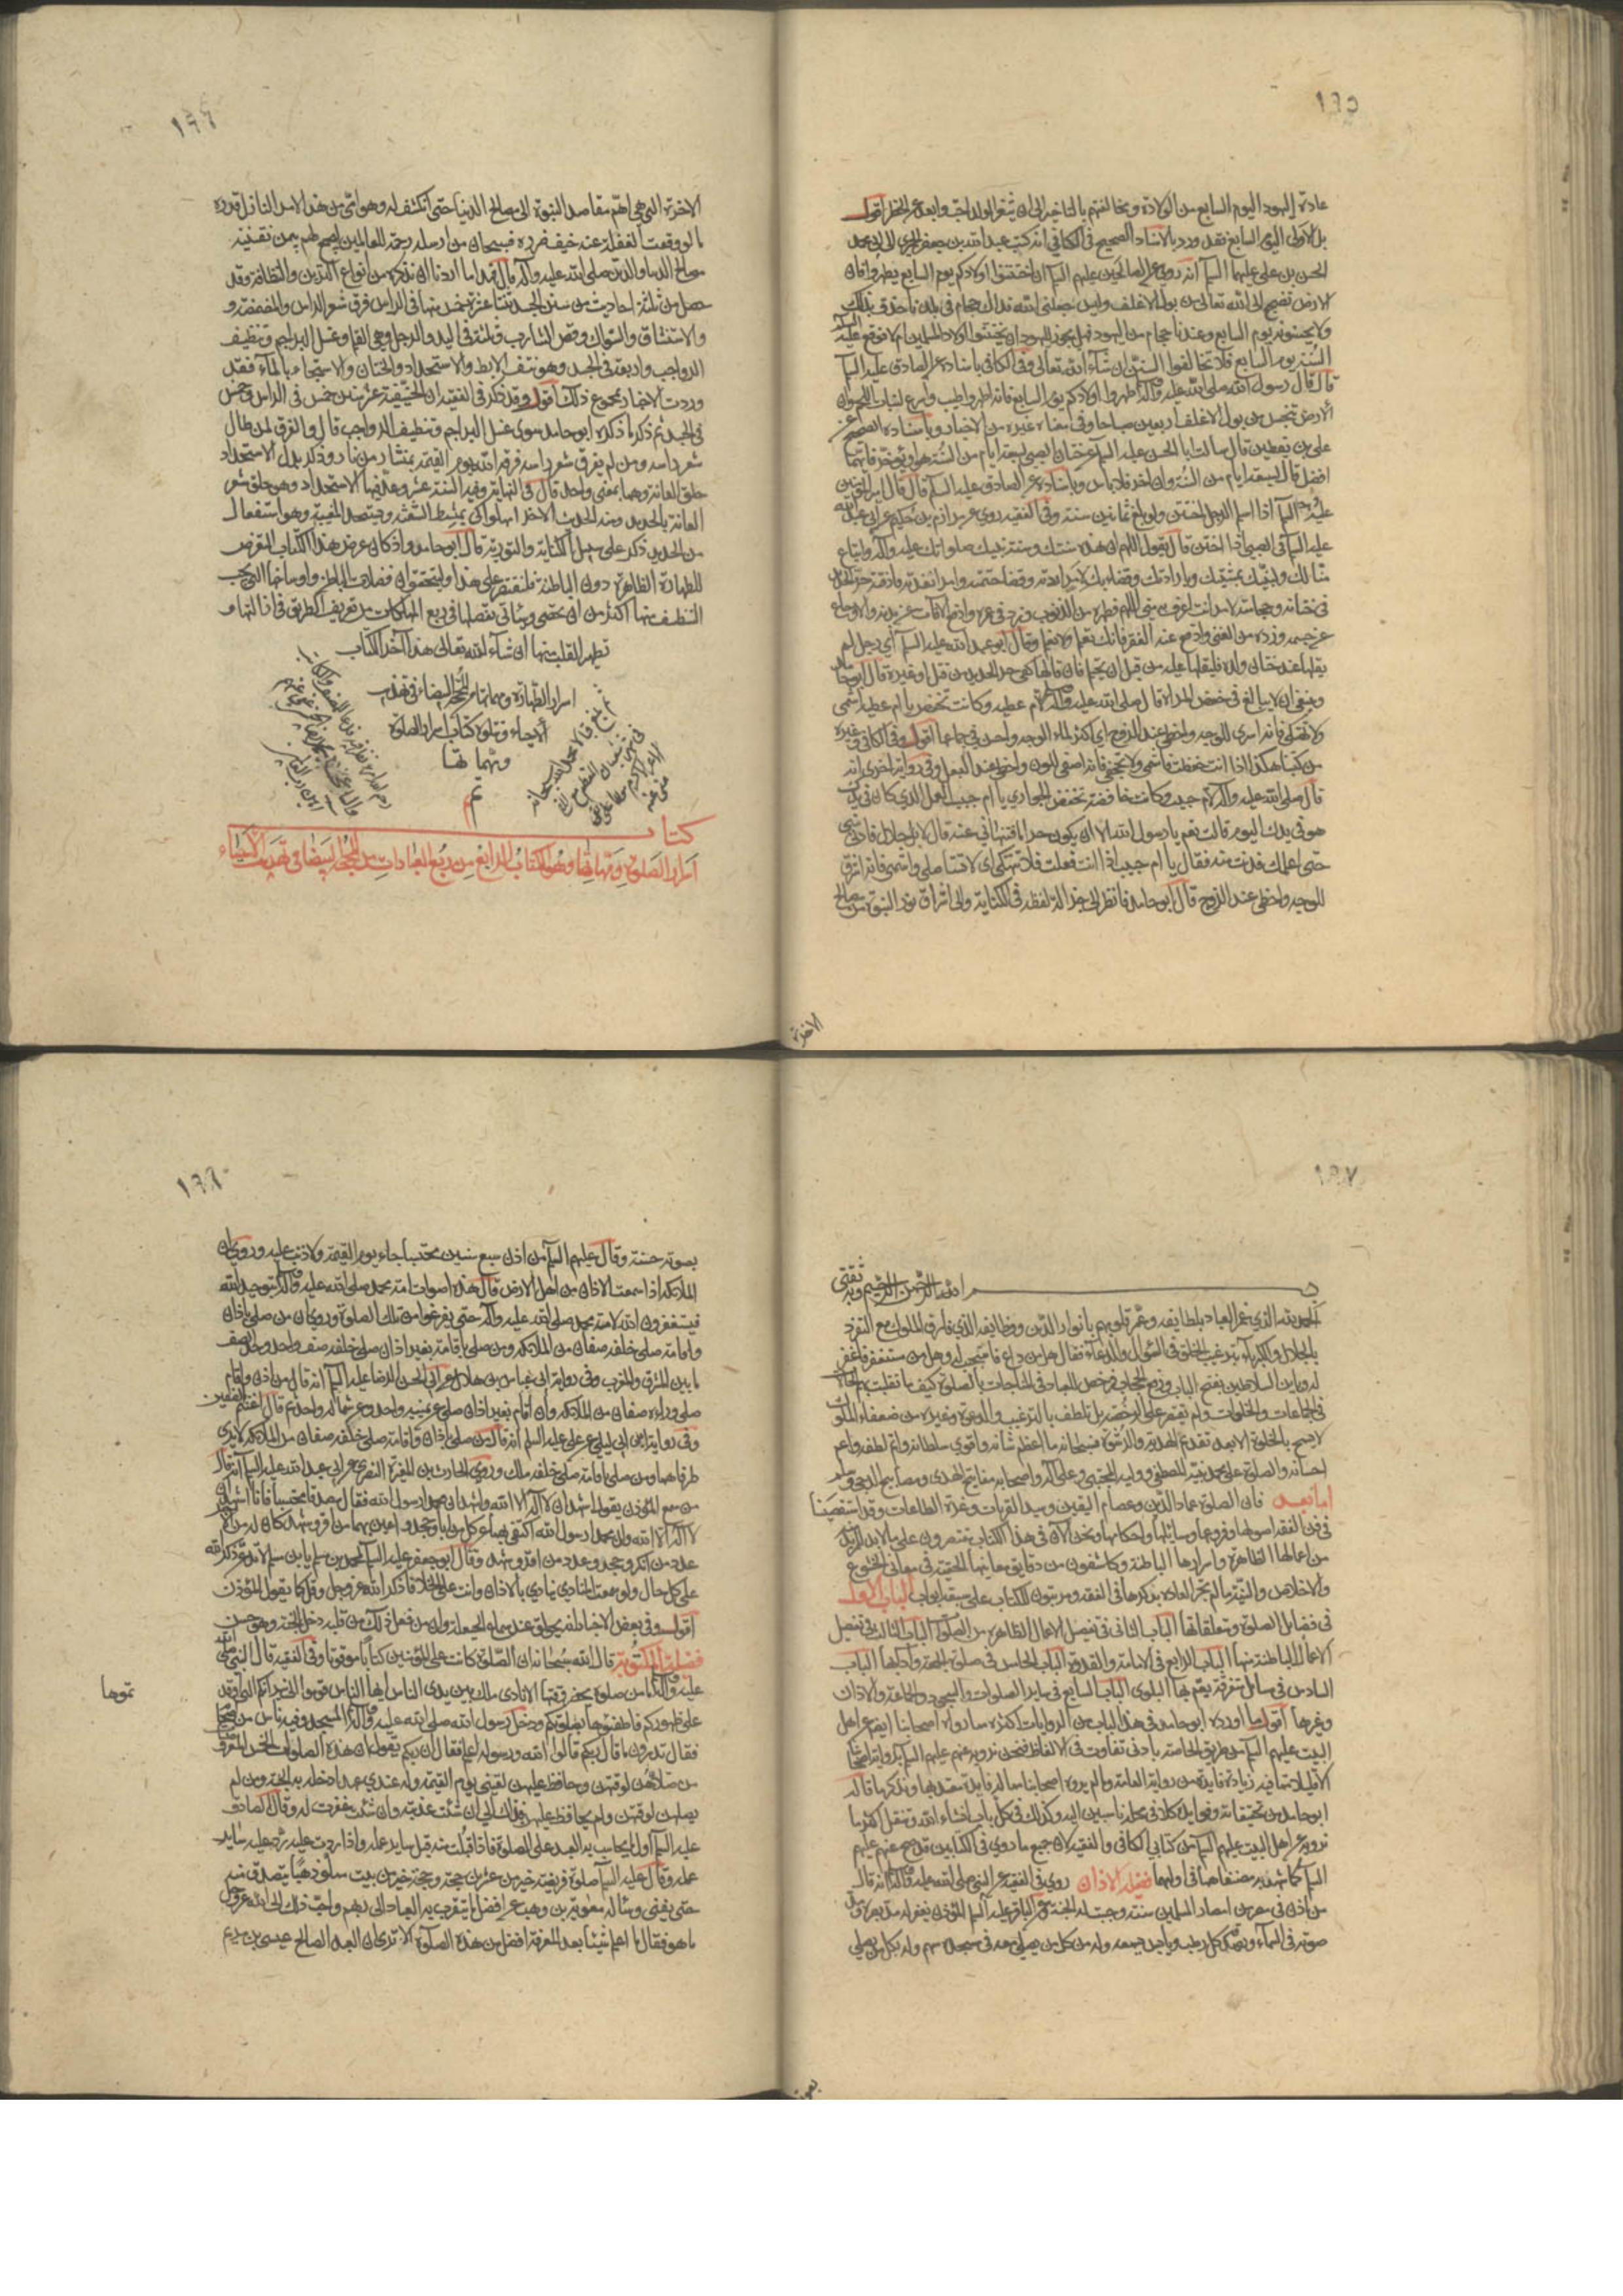 ١٩٥
عادة اليهود اليوم السابع من الولادة ومخالفتهم بالتاخير الى ان يثغر الولد احب وابعد عن الخطر اقول
بل الاولى اليوم السابع فقد ورد بالاسناد الصحيح في الكافي انه كتب عبد الله بن جعفر الحميري الى ابي محمد
الحسن بن علي عليهما السلم انه روي عن الصالحين عليهم السلم ان اختتنوا اولادكم يوم السابع يطهروا فان
الارض تضج الى الله تعالى من بول الاغلف وليس جعلني الله فداك حجام في بلدنا حذق بذلك
ولا يختنونه يوم السابع وعندنا حجام من اليهود فهل يجوز لليهود ان يختنوا اولاد المسلمين ام لا فوقع عليه السلم
السنة يوم السابع فلا تخالفوا السنن ان شاء الله تعالى وفي الكافي باسناده عن الصادق عليه السلم
قال قال رسول الله صلى الله عليه وآله طهروا اولادكم يوم السابع فانه اطهر واطيب واسرع لنبات اللحم وان
الارض تنجس من بول الاغلف اربعين صباحا وفي معناه غيره من الاخبار وباسناده الصحيح عن
علي بن يقطين قال سالت ابا الحسن عليه السلم عن ختان الصبي لسبعة ايام من السنة هو او يؤخر فايهما
افضل قال لسبعة ايام من السنة وان اخر فلا باس وباسناده عن الصادق عليه السلم قال قال امير المؤمنين
عليه السلم اذا اسلم الرجل اختتن ولو بلغ ثمانين سنة وفي الفقيه روي عن مرازم بن حكيم عن ابي عبد الله
عليه السلم في الصبي اذا ختن قال يقول اللهم ان هذه سنتك وسنة نبيك صلواتك عليه وآله واتباع
منا لك ولنبيك بمشيتك وبارادتك وقضائك لامر اردته وقضاء حتمته وامر انفذته فاذقته حر الحديد
في ختانه وحجامته لامر انت اعرف به مني اللهم فطهره من الذنوب وزد في عمره وادفع الآفات عن بدنه والاوجاع
عن جسمه وزده من الغنى وادفع عنه الفقر فانك تعلم ولا نعلم وقال ابو عبد الله عليه السلم اي رجل لم
يقلها عند ختان ولده فليقلها عليه من قبل ان يحتلم فان قالها كفي حر الحديد من قتل او غيره قال ابو حامد
وينبغي ان لا يبالغ في خفض المراة قال صلى الله عليه وآله لام عطية وكانت تخفض يا ام عطية اشمي
ولا تنهكي فانه اسرى للوجه واحظى عند الزوج اي اكثر لماء الوجه واحسن في جماعها اقول وفي الكافي وغيره
من كتبنا هكذا اذا انت خفضت فاشمي ولا تجحفي فانه اصفى للون واحظى عند البعل وفي رواية اخرى انه
قال صلى الله عليه وآله لام حبيب وكانت خافضة تخفض الجواري يا ام حبيب العمل الذي كان في يدك
هو في يدك اليوم قالت نعم يا رسول الله الا ان يكون حراما فتنهاني عنه قال لا بل حلال فادني مني
حتى اعلمك فدنت منه فقال يا ام حبيب اذا انت فعلت فلا تنهكي اي لا تستاصلي واشمي فانه اشرق
للوجه واحظى عند الزوج قال ابو حامد فانظر الى جزالة لفظه في الكناية والى اشراق نور النبوة من مصالح
الاخرة
١٩٦
الاخرة التي هي اهم مقاصد النبوة الى مصالح الدنيا حتى انكشف له وهو امي من هذا الامر النازل قدره
ما لو وقعت الغفلة عنه خيف ضرره فسبحان من ارسله رحمة للعالمين ليجمع لهم بيمن
مصالح الدنيا والدين صلى الله عليه وآله قال فهذا ما اردنا ان نذكره من انواع التزين والنظافة وقد
حصل من ثلثة احاديث من سنن الجسد ثنتا عشرة خمس منها في الراس فرق شعر الراس والمضمضة و
والاستنشاق والسواك وقص الشارب وثلثة في اليد والرجل وهي القلم وغسل البراجم وتنظيف
الرواجب واربعة في الجسد وهو نتف الابط والاستحداد والختان والاستنجاء بالماء فقد
وردت الاخبار بمجموع ذلك اقول وقد ذكر في الفقيه ان الحنيفية عشر سنن خمس في الراس وخمس
في الجسد ثم ذكر ما ذكره ابو حامد سوى غسل البراجم وتنظيف الرواجب قال والفرق لمن طال
شعر راسه ومن لم يفرق شعر راسه فرقه الله يوم القيمة بمنشار من نار وذكر بدل الاستحداد
حلق العانة وهما بمعنى واحد قال في النهاية وفيه السنة عشر وعد فيها الاستحداد وهو حلق شعر
العانة بالحديد ومنه الحديث الاخر امهلوا كي تمتشط الشعثة وتستحد المغيبة وهو استفعال
من الحديد ذكر على سبيل الكناية والتورية قال ابو حامد واذ كان غرض هذا الكتاب التعرض
للطهارة الظاهرة دون الباطنة فلنقتصر على هذا وليتحقق ان فضلات الباطن واوساخها التي يجب
التنظيف منها اكثر من ان يحصى وسياتي تفصيلها في ربع المهلكات مع تعريف الطريق في ازالتها و
تطهر القلب منها ان شاء الله تعالى هذا آخر الكتاب
اسرار الطهارة ومهماتها من المحجة البيضاء في تهذيب
الاحياء ويتلوه كتاب اسرار الصلوة
ومهماتها
تم
كتاب
اسرار الصلوة ومهماتها وهو الكتاب الرابع من ربع العبادات من المحجة البيضاء في تهذيب الاحياء
١٩٧
بسم الله الرحمن الرحيم وبه ثقتي
الحمد لله الذي غمر العباد بلطايفه وعمر قلوبهم بانوار الدين ووظايفه الذي فارق الملوك مع التفرد
بالجلال والكبرياء بترغيب الخلق في السؤال والدعاء فقال هل من داع فاستجيب له وهل من مستغفر فاغفر
له وباين السلاطين بفتح الباب ورفع الحجاب فرخص للعباد في المناجات بالصلوة كيف ما تقلبت بهم الحالات
في الجماعات والخلوات ولم يقتصر على الرخصة بل تلطف بالترغيب والدعوة وغيره من ضعفاء الملوك
لا يسمح بالخلوة الا بعد تقديم الهدية والرشوة فسبحانه ما اعظم شانه واقوى سلطانه واتم لطفه واعم
احسانه والصلوة على محمد نبيه المصطفى ووليه المجتبى وعلى آله واصحابه مفاتيح الهدى ومصابيح الدجى وسلم
اما بعد فان الصلوة عماد الدين وعصام اليقين وسيد القربات وغرة الطاعات وقد استقصينا
في فن الفقه اصولها وفروعها وسائلها واحكامها ونحن الآن في هذا الكتاب مقتصرون على ما لا بد للمريد
من اعمالها الظاهرة واسرارها الباطنة وكاشفون من دقايق معانيها الخفية في معاني الخشوع
والاخلاص والنية ما لم يجر العادة بذكرها في الفقه ومرتبون للكتاب على سبعة ابواب الباب الاول
في فضائل الصلوة ومتعلقاتها الباب الثاني في تفصيل الاعمال الظاهرة من الصلوة الباب الثالث في تفصيل
الاعمال الباطنة منها الباب الرابع في الامامة والقدوة الباب الخامس في صلوة الجمعة وآدابها الباب
السادس في مسائل متفرقة يعم بها البلوى الباب السابع في ساير الصلوات والجماعة والاذان
وغيرها اقول ما اورده ابو حامد في هذا الباب من الروايات اكثره مما رواه اصحابنا ايضا عن اهل
البيت عليهم السلم من طريق الخاصة بادنى تفاوت في الالفاظ فنحن نرويه عنهم عليهم السلم برواية اصحابنا
الا قليلا مما فيه زيادة فايدة من رواية العامة وما لم يروه اصحابنا مما له فايدة معتد بها ونذكر ما قاله
ابو حامد من تحقيقاته وفوايده كلا في محله ناسبين اليه وكذلك في كل باب انشاء الله وننقل اكثر ما
نرويه عن اهل البيت عليهم السلم من كتابي الكافي والفقيه لان جميع ما روي في الكتابين قد صح عنهم عليهم
السلم كما شهد به مصنفاهما في اولهما فضيلة الاذان روي في الفقيه عن النبي صلى الله عليه وآله انه قال
من اذن في مصر من امصار المسلمين سنة وجبت له الجنة وعن الباقر عليه السلم المؤذن يغفر له مد بصره ومد
صوته في السماء ويصدقه كل رطب ويابس سمعه وله من كل من يصلي معه في مسجده سهم وله بكل من يصلي
بصوته
١٩٨
بصوته حسنة وقال عليهم السلم من اذن سبع سنين محتسبا جاء يوم القيمة ولا ذنب عليه وروي ان
الملائكة اذا سمعت الاذان من اهل الارض قال هذه اصوات امة محمد صلى الله عليه وآله بتوحيد الله
فيستغفرون الله لامة محمد صلى الله عليه وآله حتى يفرغوا من تلك الصلوة وروي ان من صلى باذان
واقامة صلى خلفه صفان من الملائكة ومن صلى باقامة بغير اذان صلى خلفه صف واحد وحد الصف
ما بين المشرق والمغرب وفي رواية العباس بن هلال عن ابي الحسن الرضا عليه السلم انه قال من اذن واقام
صلى وراءه صفان من الملائكة وان اقام بغير اذان صلى عن يمينه واحد وعن شماله واحد ثم قال اغتنم الصفين
وفي رواية ابن ابي ليلى عن علي عليه السلم انه قال من صلى باذان واقامة صلى خلفه صفان من الملائكة لا يرى
طرفاهما ومن صلى باقامة صلى خلفه ملك وروى الحارث بن المغيرة النضري عن ابي عبد الله عليه السلم انه قال
من سمع المؤذن يقول اشهد ان لا اله الا الله واشهد ان محمدا رسول الله فقال مصدقا محتسبا وانا اشهد ان
لا اله الا الله وان محمدا رسول الله اكتفي بهما عن كل من ابى وجحد واعين بهما من اقر وشهد كان له من الاجر
عدد من انكر وجحد وعدد من اقر وشهد وقال ابو جعفر عليه السلم لمحمد بن مسلم يا ابن مسلم لا تدعن ذكر الله
على كل حال ولو سمعت المنادي ينادي بالاذان وانت على الخلاء فاذكر الله عز وجل وقل كما يقول المؤذن
اقول وفي بعض الاخبار انه يحولق عند سماع الحيعلة وان من فعل ذلك من قلبه دخل الجنة وهو حسن
فضيلة المكتوبة قال الله سبحانه ان الصلوة كانت على المؤمنين كتابا موقوتا وفي الفقيه قال النبي صلى الله
عليه وآله ما من صلوة يحضر وقتها الا نادى ملك بين يدي الناس ايها الناس قوموا الى نيرانكم التي اوقد
تموها
على ظهوركم فاطفئوها بصلوتكم ودخل رسول الله صلى الله عليه وآله المسجد وفيه ناس من اصحابه
فقال تدرون ما قال ربكم قالوا الله ورسوله اعلم فقال ان ربكم يقول ان هذه الصلوات الخمس المفروضات
من صلاهن لوقتهن وحافظ عليهن لقيني يوم القيمة وله عندي عهد ادخله به الجنة ومن لم
يصلهن لوقتهن ولم يحافظ عليهن فذلك الي ان شئت عذبته وان شئت غفرت له وقال الصادق
عليه السلم اول ما يحاسب به العبد على الصلوة فاذا قبلت منه قبل ساير عمله واذا ردت عليه رد عليه ساير
عمله وقال عليه السلم صلوة فريضة خير من عشرين حجة وحجة خير من بيت مملو ذهبا يتصدق منه
حتى يفنى وساله معوية بن وهب عن افضل ما يتقرب به العباد الى ربهم واحب ذلك الى الله عز وجل
ما هو فقال ما اعلم شيئا بعد المعرفة افضل من هذه الصلوة الا ترى ان العبد الصالح عيسى بن مريم